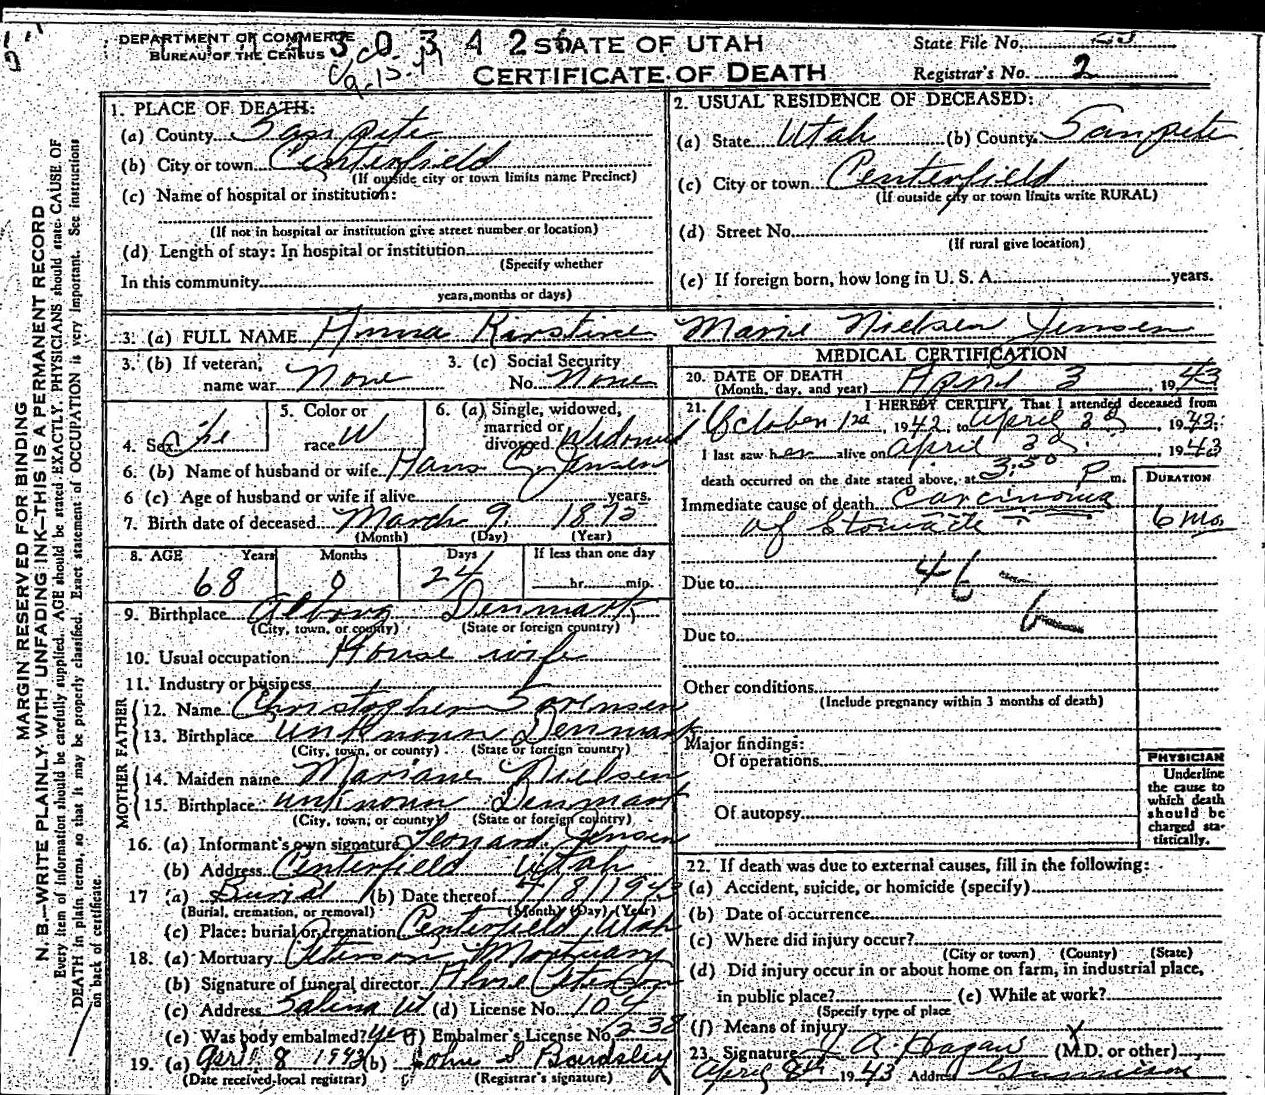 DEPARTMENT OF COMMERCE
BUREAU OF THE CENSUS
30342
STATE OF UTAH
CERTIFICATE OF DEATH
State File No.
Registrar's No. 2
MARGIN RESERVED FOR BINDING
N. B.—WRITE PLAINLY WITH UNFADING INK—THIS IS A PERMANENT RECORD
Every item of information should be carefully supplied. AGE should be stated EXACTLY. PHYSICIANS should state CAUSE OF
DEATH in plain terms, so that it may be properly classified. Exact statement of OCCUPATION is very important. See instructions
on back of certificate.
1. PLACE OF DEATH:
(a) County Sanpete
(b) City or town Centerfield
(If outside city or town limits name Precinct)
(c) Name of hospital or institution:
(If not in hospital or institution give street number or location)
(d) Length of stay: In hospital or institution
(Specify whether
In this community
years, months or days)
2. USUAL RESIDENCE OF DECEASED:
(a) State Utah (b) County Sanpete
(c) City or town Centerfield
(If outside city or town limits write RURAL)
(d) Street No.
(If rural give location)
(e) If foreign born, how long in U. S. A. years.
3. (a) FULL NAME Anna Kirstine Marie Nielsen Jensen
3. (b) If veteran, name war None
3. (c) Social Security No. None
4. Sex
5. Color or race W
6. (a) Single, widowed, married or divorced Widowed
6. (b) Name of husband or wife Hans C Jensen
6 (c) Age of husband or wife if alive years.
7. Birth date of deceased March 9 1875
(Month) (Day) (Year)
8. AGE Years Months Days If less than one day
68 0 24 hr. min.
9. Birthplace Alborg Denmark
(City, town, or county) (State or foreign country)
10. Usual occupation House wife
11. Industry or business
FATHER
12. Name Christopher Sorensen
13. Birthplace Unknown Denmark
(City, town, or county) (State or foreign country)
MOTHER
14. Maiden name Mariane Nielsen
15. Birthplace Unknown Denmark
(City, town, or county) (State or foreign country)
16. (a) Informant's own signature Leonard Jensen
(b) Address Centerfield Utah
17 (a) Burial (b) Date thereof 4/8/1943
(Burial, cremation, or removal) (Month) (Day) (Year)
(c) Place: burial or cremation Centerfield, Utah
18. (a) Mortuary Peterson Mortuary
(b) Signature of funeral director Peterson
(c) Address Salina Ut (d) License No. 104
(e) Was body embalmed? yes (f) Embalmer's License No. 238
19. (a) April 8 1943 (b) John S Bardsley
(Date received local registrar) (Registrar's signature)
MEDICAL CERTIFICATION
20. DATE OF DEATH
(Month, day, and year) April 3, 1943
21. I HEREBY CERTIFY, That I attended deceased from
October 1st, 1942, to April 3d, 1943;
I last saw her alive on April 3d, 1943
death occurred on the date stated above, at 3:30 P m.
DURATION
Immediate cause of death Carcinoma
of Stomach 6 mo.
Due to 46-
6
Due to
Other conditions
(Include pregnancy within 3 months of death)
Major findings:
Of operations
Of autopsy
PHYSICIAN
Underline
the cause to
which death
should be
charged sta-
tistically.
22. If death was due to external causes, fill in the following:
(a) Accident, suicide, or homicide (specify)
(b) Date of occurrence
(c) Where did injury occur?
(City or town) (County) (State)
(d) Did injury occur in or about home on farm, in industrial place,
in public place? (e) While at work?
(Specify type of place
(f) Means of injury
23. Signature J A Hagan (M.D. or other)
April 8th 1943 Address Gunnison